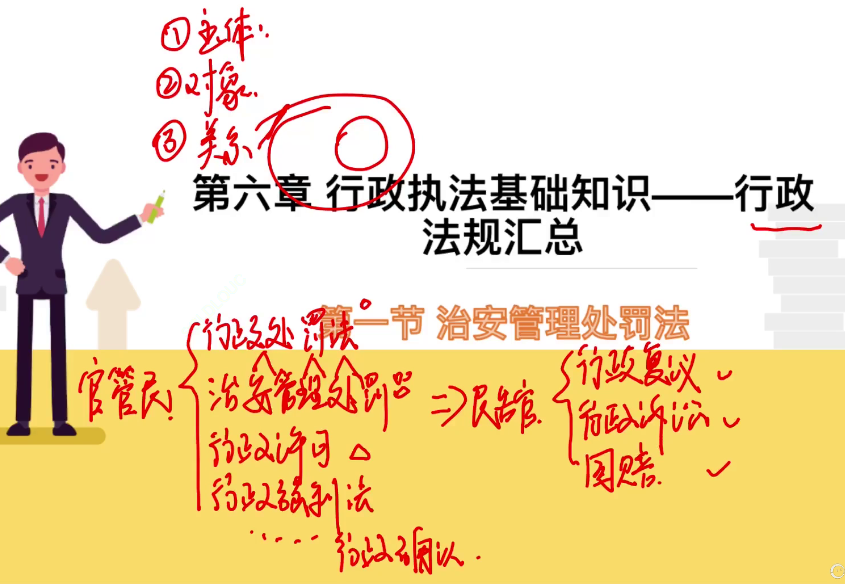 ①主体:
②对象.
③关系
第六章 行政执法基础知识——行政
法规汇总
第一节 治安管理处罚法
官管民.
行政处罚法
治安管理处罚
行政许可 △
行政强制法
......
行政确认.
=> 民告官.
行政复议 ✓
行政诉讼 ✓
国赔. ✓